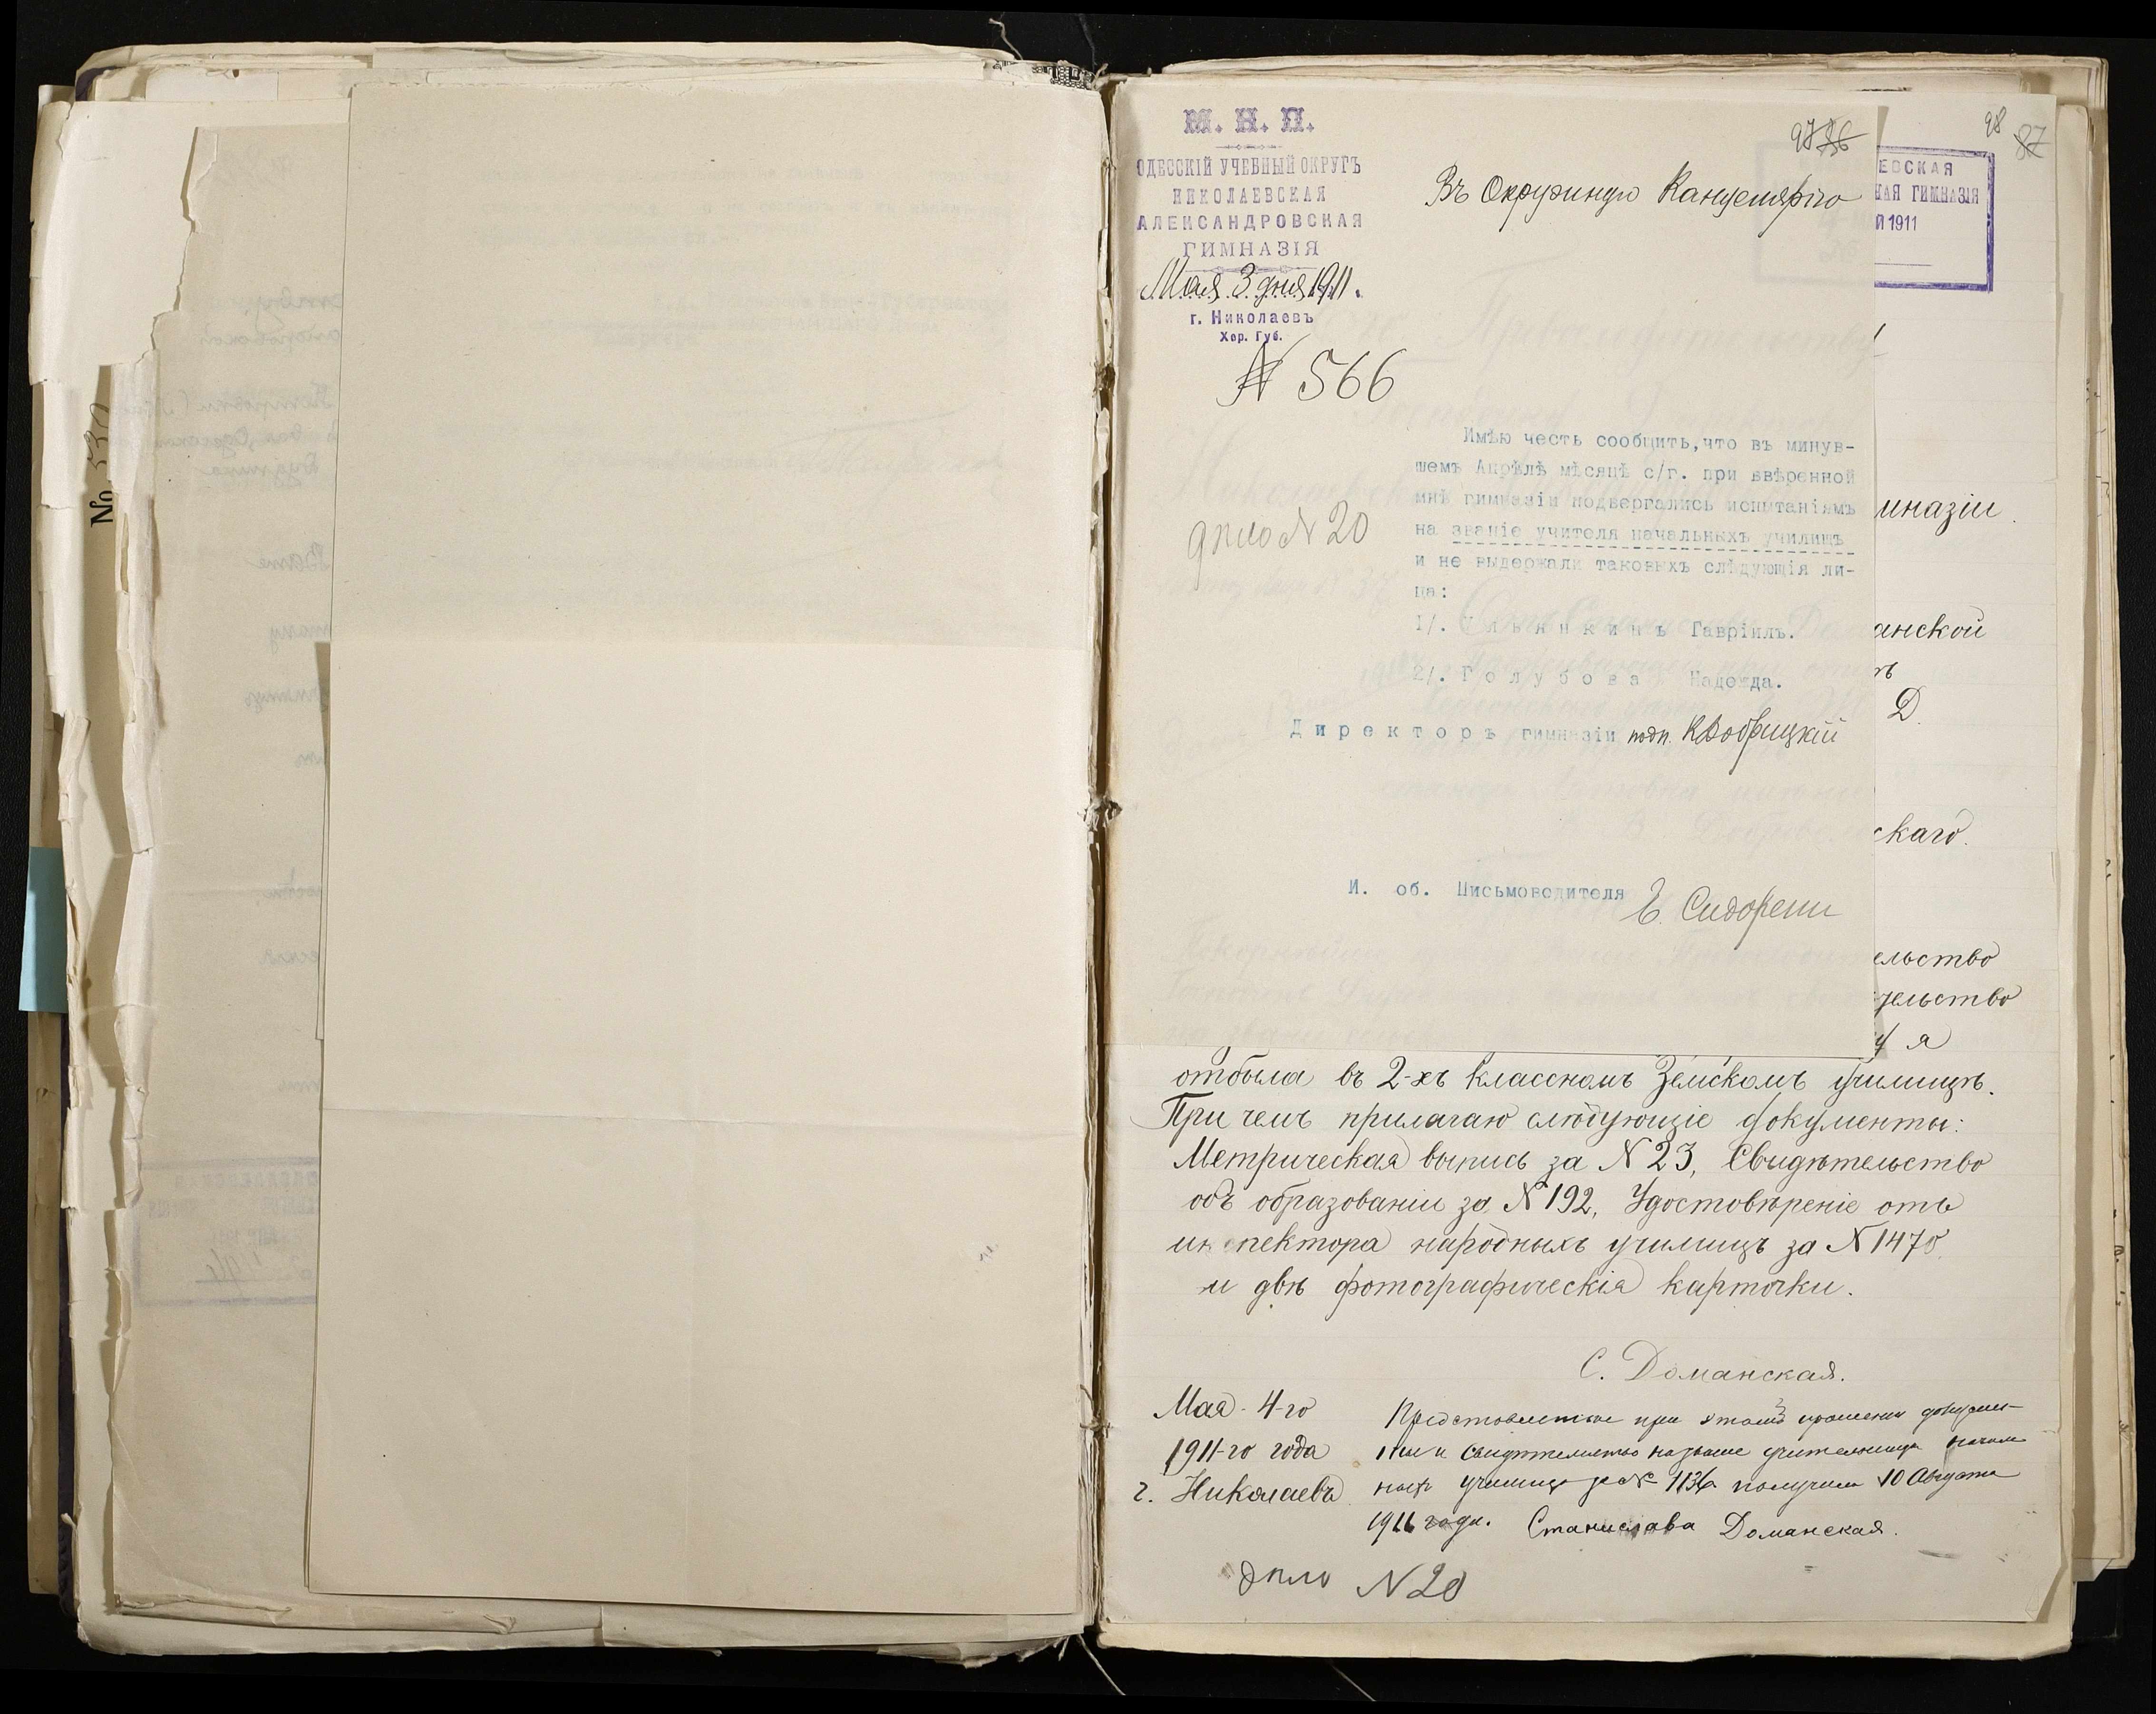 No 530
М. Н. П.
ОДЕССКІЙ УЧЕБНЫЙ ОКРУГЪ
НИКОЛАЕВСКАЯ
АЛЕКСАНДРОВСКАЯ
ГИМНАЗІЯ
Мая 3 дня 1911.
г. Николаевъ
Хер. Губ.
№ 566
97 86
Въ Окружную Канцелярію
дѣло № 20
Имѣю честь сообщить, что въ минув-
шемъ Апрѣлѣ мѣсяцѣ с/г. при ввѣренной
мнѣ гимназіи подвергались испытаніямъ
на званіе учителя начальныхъ училищъ
и не выдержали таковыхъ слѣдующія ли-
ца:
1/. Ульянкинъ Гавріилъ.
2/. Голубова Надежда.
Директоръ гимназіи подп. К Добрицкій
И. об. Письмоводителя Е. Сидорени
98 87
ЕВСКАЯ
НАЯ ГИМНАЗІЯ
Й 1911
мназіи
анской
Д.
скаго.
ельство
тельство
я
отбыла въ 2-хъ классномъ Земскомъ училищѣ.
При чемъ прилагаю слѣдующіе документы:
Метрическая выпись за № 23, Свидѣтельство
объ образованіи за № 192, Удостовѣреніе отъ
инспектора народныхъ училищъ за № 1470
и двѣ фотографическія карточки.
С. Доманская.
Мая 4-го
1911-го года
г. Николаевъ
при прошеніи докумен-
ты и свидѣтельство на званіе учительницы началь
ныхъ училищъ за № 1136 получила 10 Августа
1911 года. Станислава Доманская.
дѣло № 20